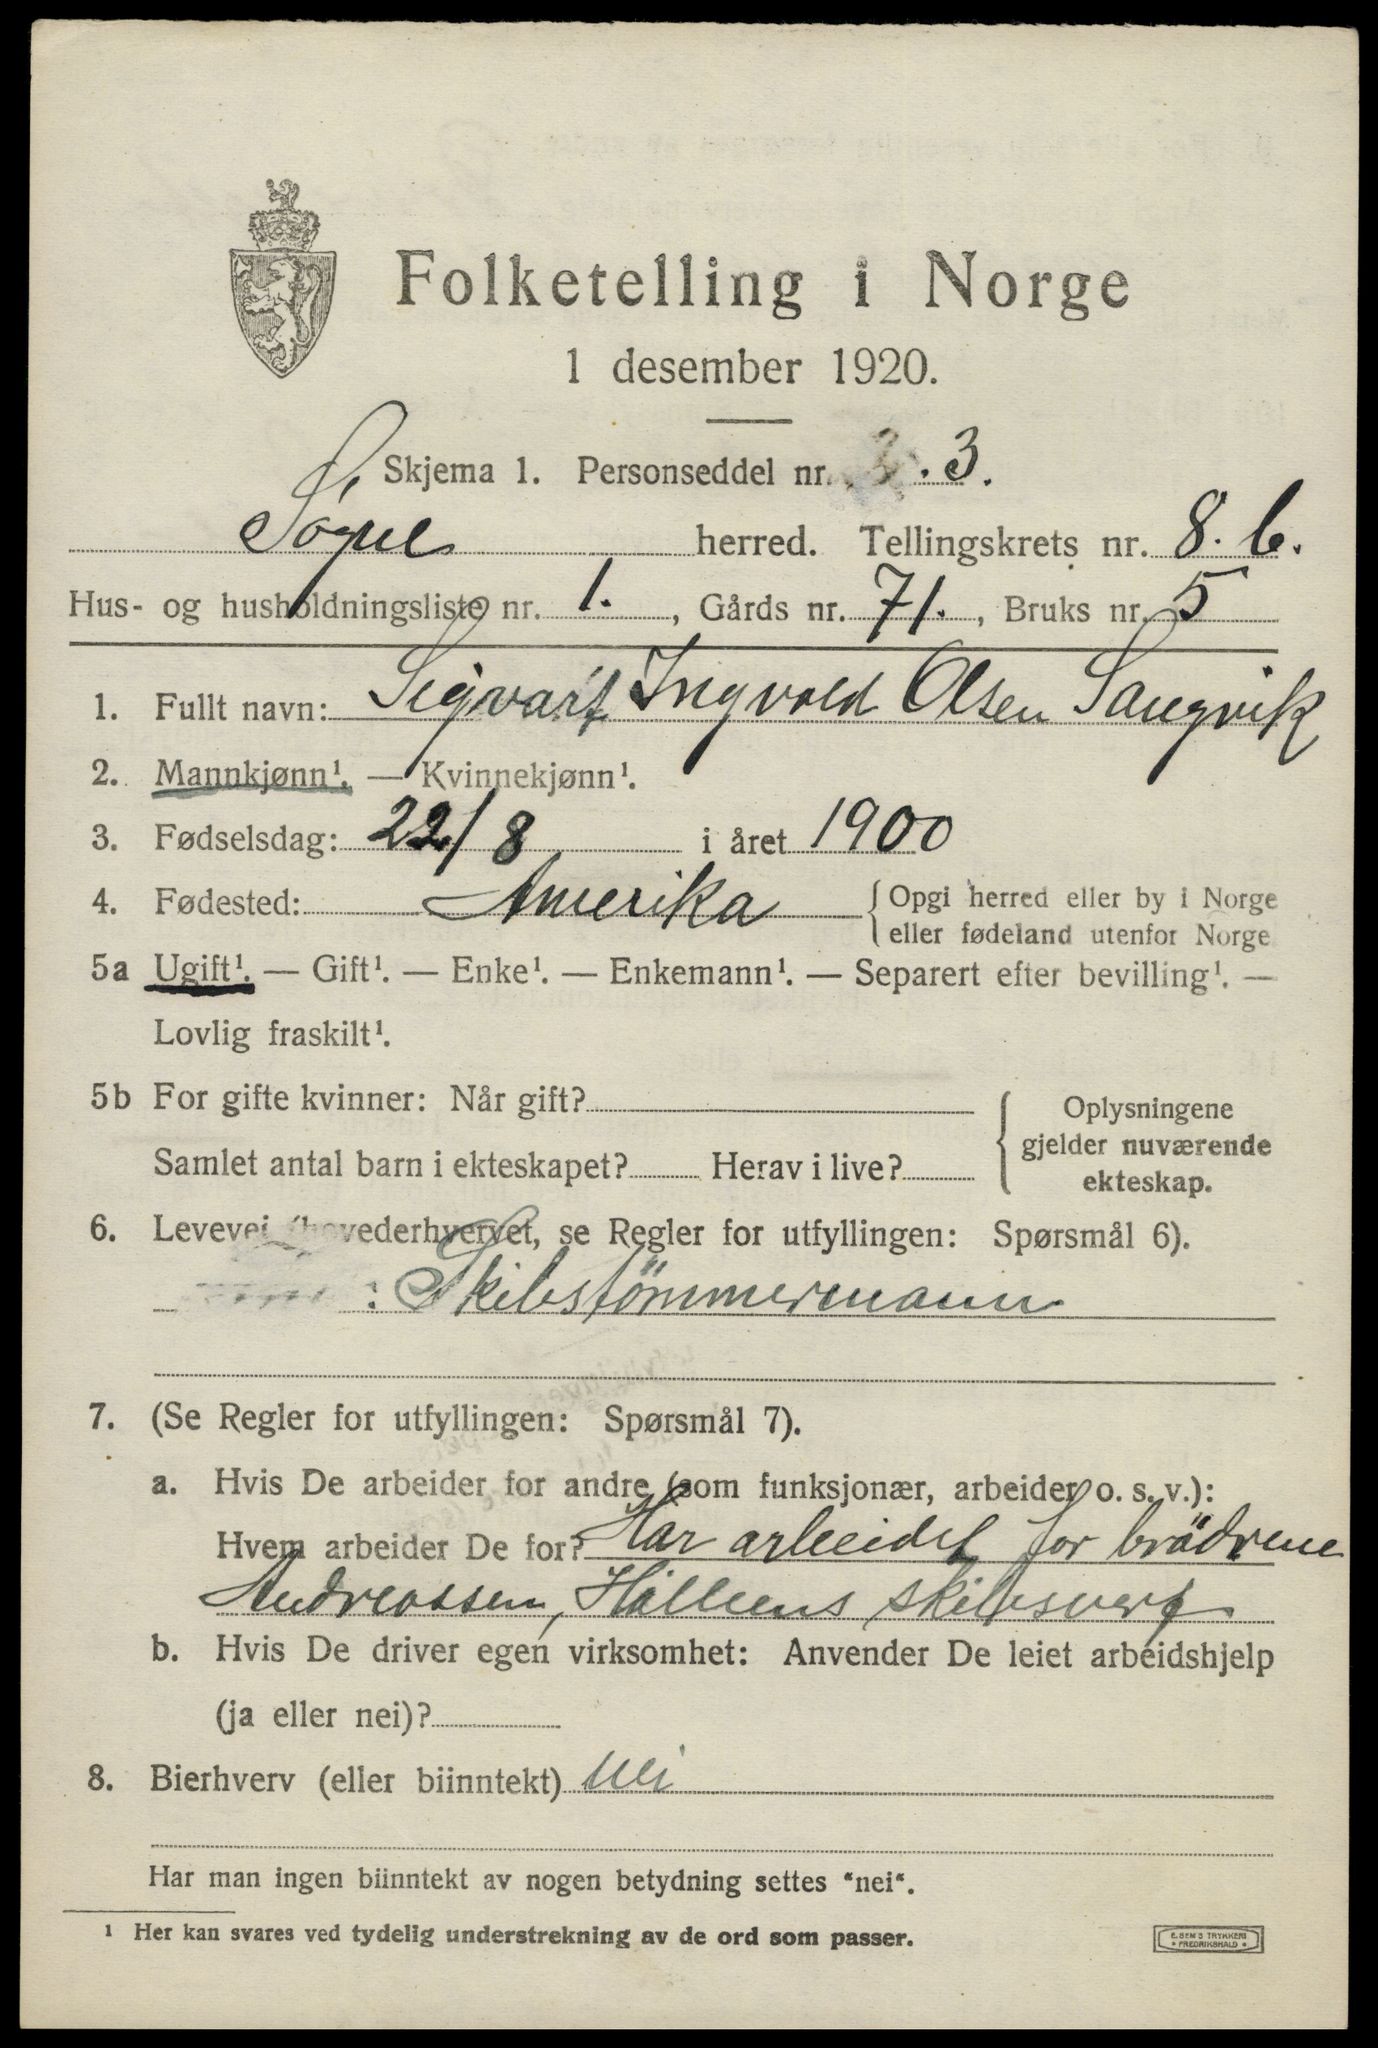 Folketelling i Norge
1 desember 1920.
Skjema 1. Personseddel nr. 3.
Søgne herred. Tellingskrets nr. 8. b.
Hus- og husholdningsliste nr. 1. , Gårds nr. 71. , Bruks nr. 5
1. Fullt navn: Sigvart Ingvold Olsen Langvik
2. Mannkjønn¹. — Kvinnekjønn¹.
3. Fødselsdag: 22/8 i året 1900
4. Fødested: Amerika { Opgi herred eller by i Norge
eller fødeland utenfor Norge
5a Ugift¹. — Gift¹. — Enke¹. — Enkemann¹. — Separert efter bevilling¹. —
Lovlig fraskilt¹.
5b For gifte kvinner: Når gift? { Oplysningene
gjelder nuværende
Samlet antal barn i ekteskapet? Herav i live?
ekteskap.
6. Levevei (hovederhvervet, se Regler for utfyllingen: Spørsmål 6).
: Skibstömmermann
7. (Se Regler for utfyllingen: Spørsmål 7).
a. Hvis De arbeider for andre (som funksjonær, arbeider o. s. v.):
Hvem arbeider De for? Har arbeidet for brödrene
Andreassen, Hållens skibsverf
b. Hvis De driver egen virksomhet: Anvender De leiet arbeidshjelp
(ja eller nei)?
8. Bierhverv (eller biinntekt) nei
Har man ingen biinntekt av nogen betydning settes "nei".
¹ Her kan svares ved tydelig understrekning av de ord som passer.
E. SEM'S TRYKKERI
• FREDRIKSHALD •